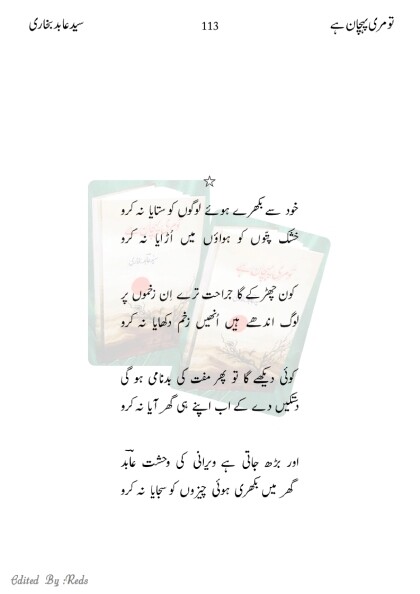 تو مری پہچان ہے 113 سید عابد بخاری
☆
خود سے بکھرے ہوئے لوگوں کو ستایا نہ کرو
خشک پتوں کو ہواؤں میں اُڑایا نہ کرو
کون چھڑکے گا جراحت ترے اِن زخموں پر
لوگ اندھے ہیں اُنھیں زخم دکھایا نہ کرو
کوئی دیکھے گا تو پھر مفت کی بدنامی ہو گی
دستکیں دے کے اب اپنے ہی گھر آیا نہ کرو
اور بڑھ جاتی ہے ویرانی کی وحشت عابدؔ
گھر میں بکھری ہوئی چیزوں کو سجایا نہ کرو
Edited By Reds